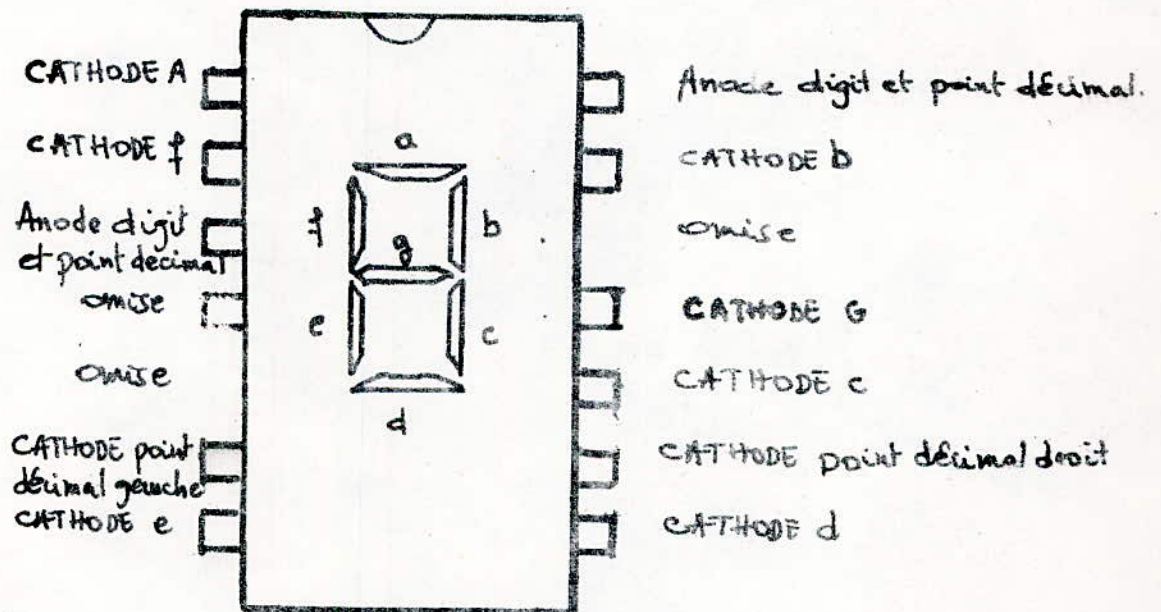 CATHODE A
CATHODE f
Anode digit
et point decimal
omise
omise
CATHODE point
décimal gauche
CATHODE e
a
f
b
g
e
c
d
Anode digit et point décimal.
CATHODE b
omise
CATHODE G
CATHODE c
CATHODE point décimal droit
CATHODE d